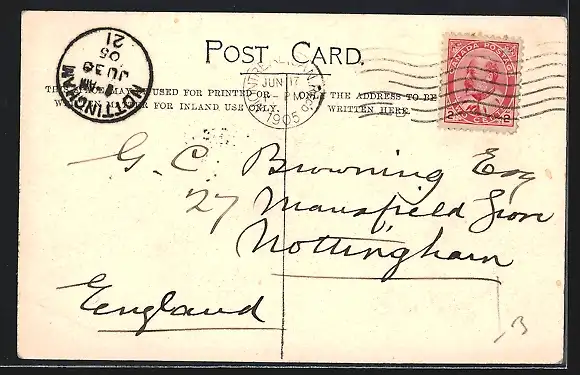 POST CARD.
THIS SPACE MAY BE USED FOR PRINTED OR
FOR INLAND USE ONLY.
ONLY THE ADDRESS TO BE
WRITTEN HERE.
NOTTINGHAM
AM
JU 30
05
21
JUN
PM
1905
CANADA POSTAGE
2 CENTS 2
G. C. Browning Esq
27 Mansfield Grove
Nottingham
England